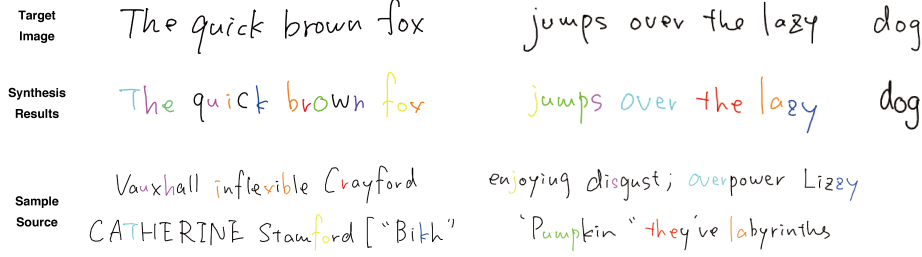 Target Image The quick brown fox jumps over the lazy dog
Synthesis Results The quick brown fox jumps over the lazy dog
Sample Source
Vauxhall inflexible Crayford enjoying disgust; overpower Lizzy
CATHERINE Stamford ["Bikh" 'Pumpkin "they've labyrinths